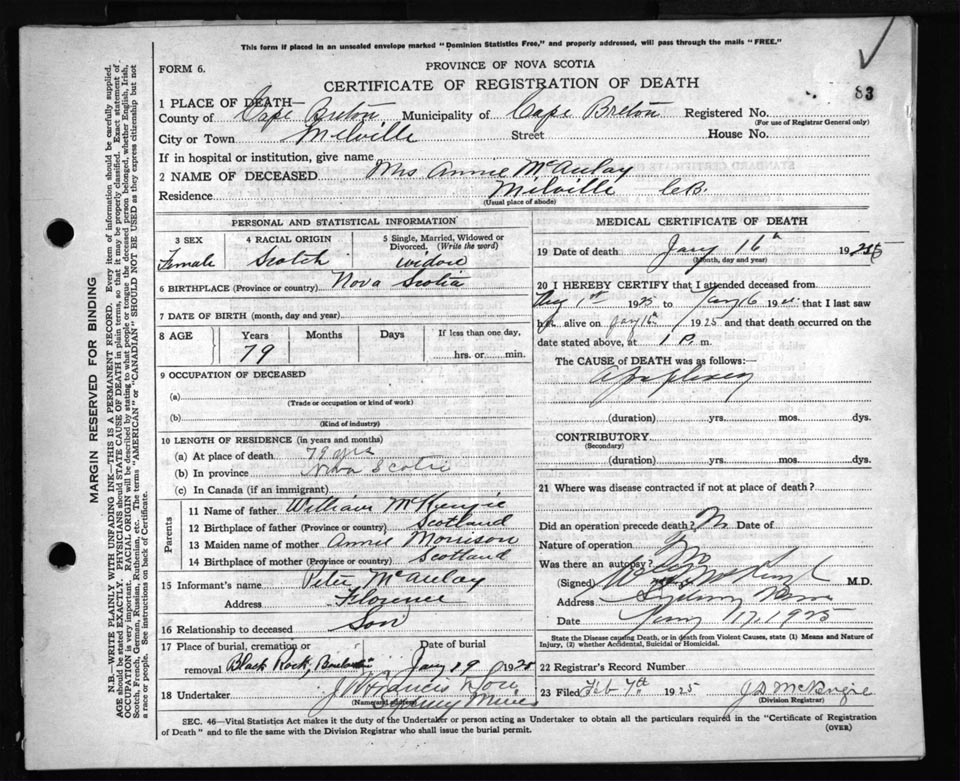 This form if placed in an unsealed envelope marked "Dominion Statistics Free," and properly addressed, will pass through the mails "FREE."
FORM 6.
PROVINCE OF NOVA SCOTIA
83
CERTIFICATE OF REGISTRATION OF DEATH
1 PLACE OF DEATH—
County of Cape Breton Municipality of Cape Breton Registered No.
(For use of Registrar General only)
City or Town Melville Street House No.
If in hospital or institution, give name
2 NAME OF DECEASED Mrs Annie McAulay
Residence Milville C.B.
(Usual place of abode)
PERSONAL AND STATISTICAL INFORMATION
3 SEX
Female
4 RACIAL ORIGIN
Scotch
5 Single, Married, Widowed or
Divorced. (Write the word)
widow
6 BIRTHPLACE (Province or country) Nova Scotia
7 DATE OF BIRTH (month, day and year)
8 AGE Years Months Days If less than one day,
79 hrs. or min.
9 OCCUPATION OF DECEASED
(a)
(Trade or occupation or kind of work)
(b)
(Kind of industry)
10 LENGTH OF RESIDENCE (in years and months)
(a) At place of death 79 yrs
(b) In province Nova Scotia
(c) In Canada (if an immigrant)
Parents
11 Name of father William McKenzie
12 Birthplace of father (Province or country) Scotland
13 Maiden name of mother Annie Morrison
14 Birthplace of mother (Province or country) Scotland
15 Informant's name Peter McAulay
Address Florence
16 Relationship to deceased Son
17 Place of burial, cremation or Date of burial
removal Black Rock, Jany 19 1925
18 Undertaker J W Francis
(Name and address) Sydney Mines
MEDICAL CERTIFICATE OF DEATH
19 Date of death Jany 16th 192
(Month, day and year)
20 I HEREBY CERTIFY that I attended deceased from
Aug 1st 1925 to Jany 16 19 that I last saw
h alive on Jany 16th 1925 and that death occurred on
date stated above, at 1 P. m.
The CAUSE of DEATH was as follows:—
Apoplexy
(duration) yrs. mos. dys.
CONTRIBUTORY
(Secondary)
(duration) yrs. mos. dys.
21 Where was disease contracted if not at place of death?
Did an operation precede death? No Date of
Nature of operation
Was there an autopsy? No
(Signed) M.D.
Address Sydney Mines
Date Jany 17, 1925
State the Disease causing Death, or in death from Violent Causes, state (1) Means and Nature of
Injury, (2) whether Accidental, Suicidal or Homicidal.
22 Registrar's Record Number
23 Filed Feb 7th 1925 J D McKenzie
(Division Registrar)
SEC. 46—Vital Statistics Act makes it the duty of the Undertaker or person acting as Undertaker to obtain all the particulars required in the "Certificate of Registration
of Death" and to file the same with the Division Registrar who shall issue the burial permit.
(OVER)
MARGIN RESERVED FOR BINDING
N.B.—WRITE PLAINLY WITH UNFADING INK—THIS IS A PERMANENT RECORD. Every item of information should be carefully supplied.
AGE should be stated EXACTLY. PHYSICIANS should STATE CAUSE OF DEATH in plain terms, so that it may be properly classified. Exact statement of
OCCUPATION is very important. RACIAL ORIGIN will be described by stating to what people or tongue the deceased person belonged, whether English, Irish,
Scotch, French, German, Russian, Ruthenian, etc. The terms "AMERICAN" or "CANADIAN" SHOULD NOT BE USED as they express citizenship but not
a race or people. See instructions on back of Certificate.